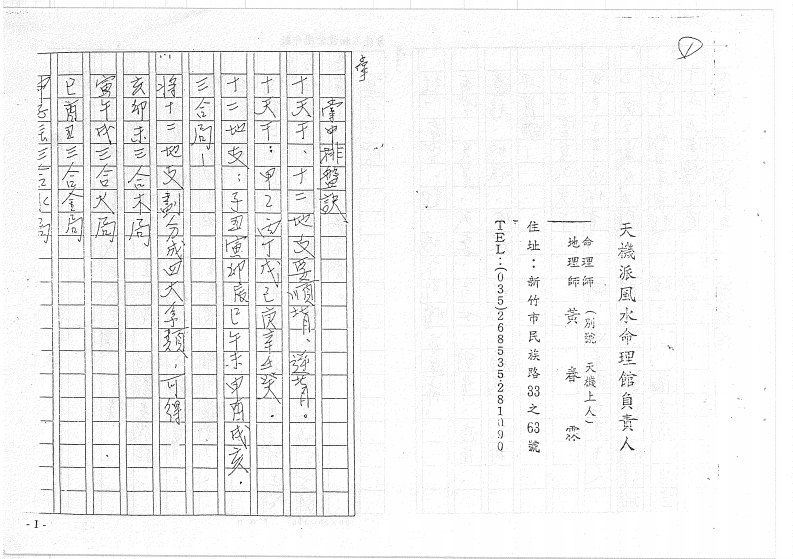 ①
天機派風水命理館負責人
命理師
地理師
黃春霖
(別號 天機上人)
住址：新竹市民族路33之63號
TEL：(035)268535.281090
掌中排盤訣
十天干、十二地支要順背、逆背。
十天干：甲乙丙丁戊己庚辛壬癸．
十二地支：子丑寅卯辰巳午未申酉戌亥．
三合局—
將十二地支劃分成四大类類，可得
亥卯未三合木局
寅午戌三合火局
巳酉丑三合金局
申子辰三合水局
- 1 -